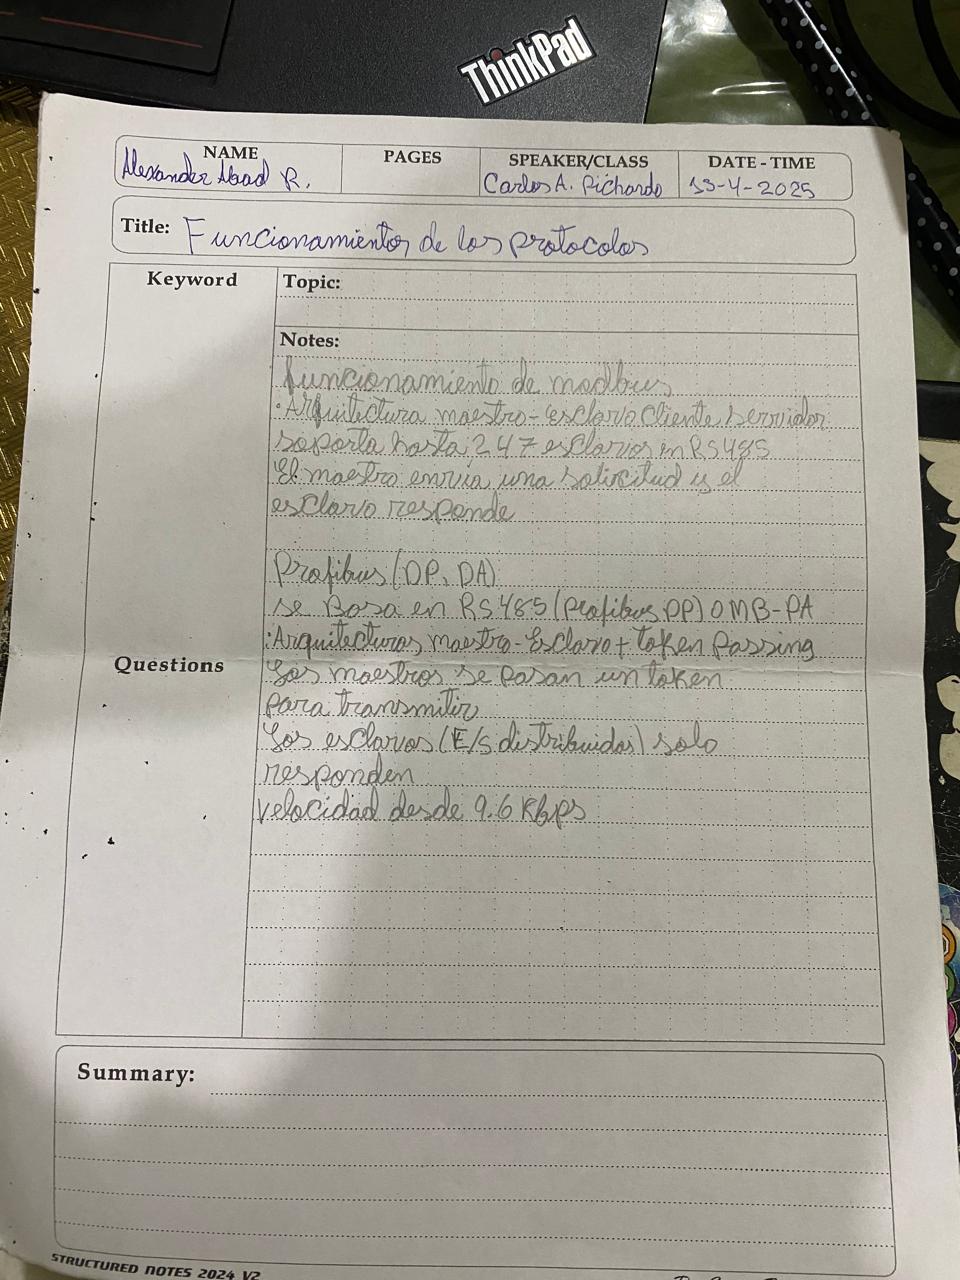 ThinkPad
NAME PAGES SPEAKER/CLASS DATE - TIME
Alexander Abad R. Carlos A. Pichardo 13-4-2025
Title: Funcionamientos de los protocolos
Keyword
Topic:
Notes:
funcionamiento de modbus
·Arquitectura maestro-Esclavo Cliente servidor
soporta hasta 247 esclavos en RS485
El maestro envia una solicitud y el
esclavo responde
Profibus (DP, DA)
se Basa en RS485 (Profibus DP) O MB-PA
:Arquitecturas maestro-Esclavo + token Passing
Questions
Los maestros se pasan un token
para transmitir
Los esclavos (E/S distribuidas) solo
responden
velocidad desde 9.6 KBps
Summary:
STRUCTURED NOTES 2024 V2